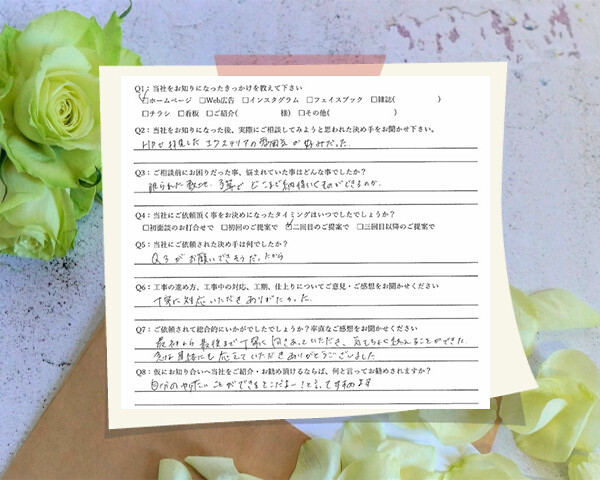 Q1：当社をお知りになったきっかけを教えて下さい
☑ホームページ □Web広告 □インスタグラム □フェイスブック □雑誌( )
□チラシ □看板 □ご紹介( 様) □その他( )
Q2：当社をお知りになった後、実際にご相談してみようと思われた決め手をお聞かせ下さい。
HPで拝見した エクステリアの雰囲気が好みだった.
Q3：ご相談前にお困りだった事、悩まれていた事はどんな事でしたか？
限られた敷地、予算で どこまで納得いくものができるのか.
Q4：当社にご依頼頂く事をお決めになったタイミングはいつでしたでしょうか？
□初面談のお打合せで □初回のご提案で ☑二回目のご提案で □三回目以降のご提案で
Q5：当社にご依頼された決め手は何でしたか？
Q3がお願いできそうだったから
Q6：工事の進め方、工事中の対応、工期、仕上りについてご意見・ご感想をお聞かせください
丁寧に対応いただきありがたかった.
Q7：ご依頼されて総合的にいかがでしたでしょうか？率直なご感想をお聞かせください
最初から最後まで丁寧に向きあっていただき、気もちよく終えることができた.
急な見積にも応えていただきありがとうございました
Q8：仮にお知り合いへ当社をご紹介・お勧め頂けるならば、何と言ってお勧めされますか？
自分のやりたいことができるとこだよー！と言ってすすめます